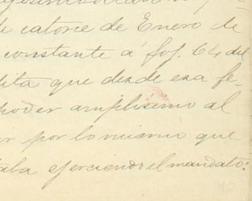 de catorce de Enero de
constante á foj. 64 del
dita que desde esa fe-
poder amplísimo al
er por lo mismo que
aba ejerciendo el mandato: